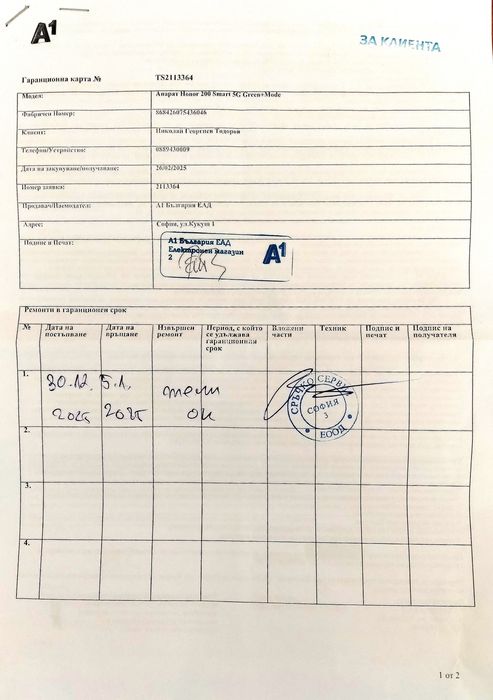 A1
ЗА КЛИЕНТА
Гаранционна карта № TS2113364
Модел: Апарат Honor 200 Smart 5G Green+Mode
Фабричен Номер: 868426075436046
Клиент: Николай Георгиев Тодоров
Телефон/Устройство: 0889430009
Дата на закупуване/получаване: 26/02/2025
Номер заявка: 2113364
Продавач/Наемодател: А1 България ЕАД
Адрес: София, ул.Кукуш 1
Подпис и Печат:
А1 България ЕАД
Електронен магазин
2
A1
Ремонти в гаранционен срок
№ Дата на постъпване Дата на връщане Извършен ремонт Период, с който се удължава гаранционния срок Вложени части Техник Подпис и печат Подпис на получателя
1. 30.12. 5.1.
ок
СРЪЧКО СЕРВИЗ
СОФИЯ
3
ЕООД
2.
3.
4.
1 от 2